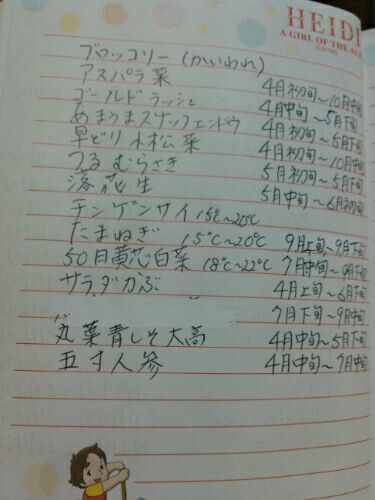 HEIDI
A GIRL OF THE
ブロッコリー (かいわれ)
アスパラ菜 4月初旬～10月中旬
ゴールドラッシュ 4月中旬～5月下旬
あまうまスナップエンドウ 4月初旬～5月下旬
早どり小松菜 4月初旬～10月中旬
つるむらさき 5月初旬～5月下旬
落花生 5月中旬～6月初旬
チンゲンサイ 15℃～20℃
たまねぎ 15℃～20℃ 9月上旬～9月下旬
50日黄芯白菜 18℃～22℃ 7月中旬～9月下旬
サラダかぶ 4月上旬～6月下旬
7月下旬～9月中旬
丸葉青しそ大高 4月中旬～5月下旬
五寸人参 4月中旬～7月中旬